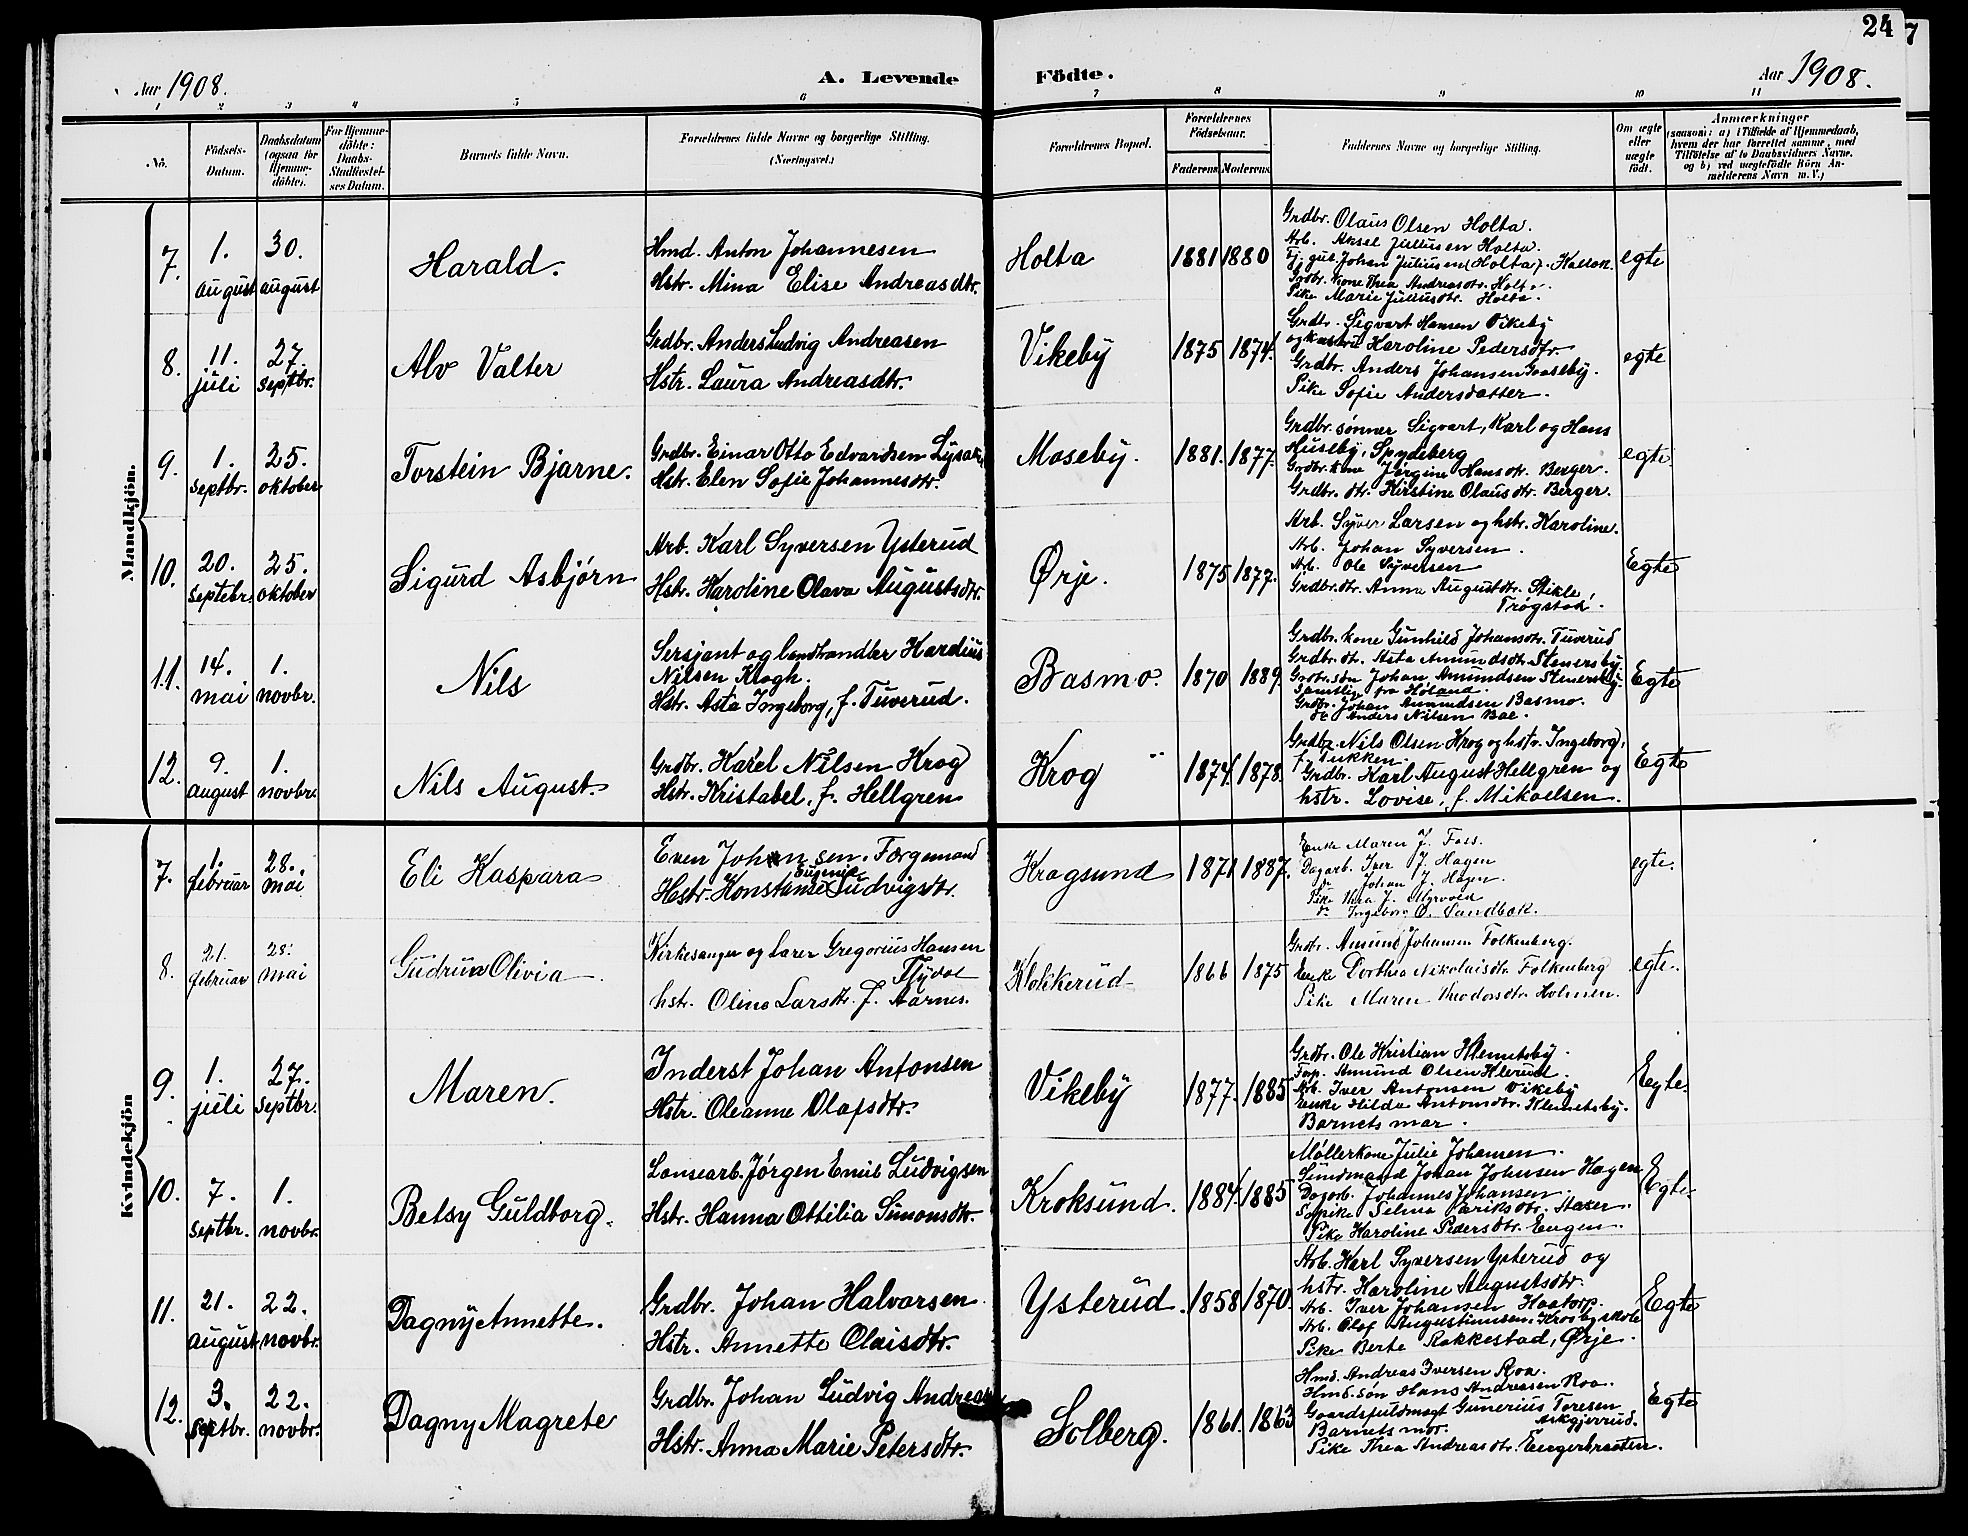 24
7
Aar 1908.
A. Levende
Födte.
Aar 1908.
1 2 3 4 5 6 7 8 9 10 11
No.
Födsels-
Datum.
Daabsdatum
(ogsaa for
Hjemme-
döbte).
For Hjemme-
döbte:
Daabs-
Stadfæstel-
ses Datum.
Barnets fulde Navn.
Forældrenes fulde Navne og borgerlige Stilling.
(Næringsvei.)
Forældrenes Bopæl.
Forældrenes
Födselsaar.
Faderens
Moderens
Faddernes Navne og borgerlige Stilling.
Om ægte
eller
uægte
födt.
Anmærkninger
(saasom: a) i Tilfælde af Hjemmedaab,
hvem der har forrettet samme, med
Tilföielse af to Daabsvidners Navne.
og b) ved uægtefödte Börn An-
melderens Navn m. V.)
Mandkjön.
7.
1.
august
30.
august
Harald.
Hmd. Anton Johannesen
Hstr. Mina Elise Andreasdtr.
Holta
1881
1880
Grdbr. Olaus Olsen Holta.
Arb. Aksel Juliusen Holta.
Johan Juliusen (Holta)
Grdbr. kone Thea Andreasdtr. Holta.
Pike Marie Juliusdtr. Holta.
egte
8.
11.
juli
27.
septbr.
Alv Valter
Grdbr. Anders Ludvig Andreasen
Hstr. Laura Andreasdtr.
Vikeby
1875
1874.
Grdbr. Sigvart Hansen Vikeby
og hustru Karoline Pedersdtr.
Grdbr. Anders Johansen Gaaseby.
Pike Sofie Andersdatter.
egte
9.
1.
septbr.
25.
oktober
Torstein Bjarne.
Grdbr. Einar Otto Edvardsen Lysaker
Hstr. Elen Sofie Johannesdtr.
Moseby.
1881.
1877.
Grdbr. sønner Sigvart, Karl og Hans
Huseby, Spydeberg
Grdbr. kone Jørgine Hansdtr. Berger.
Grdbr. dtr. Kirstine Olausdtr. Berger.
egte.
10.
20.
septebr.
25.
oktober
Sigurd Asbjørn
Arb. Karl Syversen Ysterud
Hstr. Karoline Olava Augustsdtr.
Ørje.
1875
1877.
Arb. Syver Larsen og hstr. Karoline.
Arb. Johan Syversen.
Arb. Ole Syversen
Grdbr. dtr. Anna Augustdtr. Stikle,
Trøgstad.
Egte
11.
14.
mai
1.
novbr.
Nils
Sersjant og landhandler Hardius
Nilsen Krogh.
Hstr. Asta Ingeborg, f. Tuverud.
Basmo.
1870
1889
Grdbr. kone Gunhild Johansdtr. Tuverud
Grdbr. dtr. Asta Amundsdtr. Stenersby
Grdbr. søn Johan Amundsen Stenersby.
Samtlige fra Høland.
Grdbr. Johan Amundsen Basmo.
do Anders Nilsen Bøe.
Egte
12.
9.
august
1.
novbr.
Nils August.
Grdbr. Karel Nilsen Krog
Hstr. Kristabel, f. Hellgren
Krog
1874.
1878.
Grdbr. Nils Olsen Krog og hstr. Ingeborg,
f. Tukken.
Grdbr. Karl August Hellgren og
hstr. Lovise, f. Mikaelsen.
Egte
Kvindekjön
7.
1.
februar
28.
mai
Eli Kaspara
Even Johansen. Færgemand
Eugenie
Hstr. Konstanse Ludvigsdtr.
Kragsund
1871
1887.
Enke Maren J. Foss.
Dagarb. Iver J. Hagen
do Johan J. Hagen.
Pike Thea J. Myrvold
do Ingeborg O. Sandbæk.
egte.
8.
21.
februar
28.
mai
Gudrun Olivia
Kirkesanger og Lærer Gregorius Hansen
hstr. Olina Larsdtr. f. Aarnes.
Klokkerud
1866
1875
Grdbr. Amund Johansen Folkenberg.
Enke Dorthea Nikolaisdtr. Folkenberg
Pike Maren Theodorsdtr. Holmen.
egte.
9.
1.
juli
27.
septbr.
Maren.
Inderst Johan Antonsen
Hstr. Oleanne Olafsdtr.
Vikeby
1877.
1885
Grdbr. Ole Kristian Klemetsby.
Forp. Amund Olsen Hlerud.
Arb. Iver Antonsen Vikeby
Enke Hilda Antonsdtr. Klemetsby.
Barnets mor.
Egte.
10.
7.
septbr.
1.
novbr.
Betsy Guldborg.
Lænsearb. Jørgen Emil Ludvigsen
Hstr. Hanna Ottilia Simonsdtr.
Kroksund.
1884.
1885
Møllerkone Julie Johansen.
Sundmand Johan Johnsen Hagen
Dagarb. Johannes Johansen.
Pike Karoline Pedersdtr. Engen.
Egte.
11.
21.
august
22.
novbr.
Dagny Annette.
Grdbr. Johan Halvorsen
Hstr. Annette Olaisdtr.
Ysterud.
1858
1870
Arb. Karl Syversen Ysterud og
hstr. Karoline Augustsdtr.
Arb. Iver Johansen Haatorp.
Arb. Olaf Augustinusen, Krosby skole
Pike Berte Rakkestad, Ørje.
Egte
12.
3.
septbr.
22.
novbr.
Dagny Magrete
Grdbr. Johan Ludvig Andreas
Hstr. Anna Marie Petersdtr.
Solberg.
1861.
1863
Hmd. Andreas Iversen Roa.
Hmd. søn Hans Andreasen Roa.
Gaardsfuldmægt Gunerius Toresen
Askjerrud.
Barnets mor.
Pike Thea Andreasdtr. Engerbraaten.
Egte